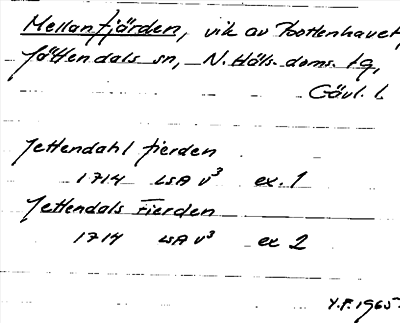 Mellanfjärden, vik av Bottenhavet,
Jättendals sn, N. Häls. doms. tg,
Gävl. l.
Jettendahl fierden
1714 LSA V³ ex. 1
Jettendals Fierden
1714 LSA V³ ex 2
Y.F. 1965.